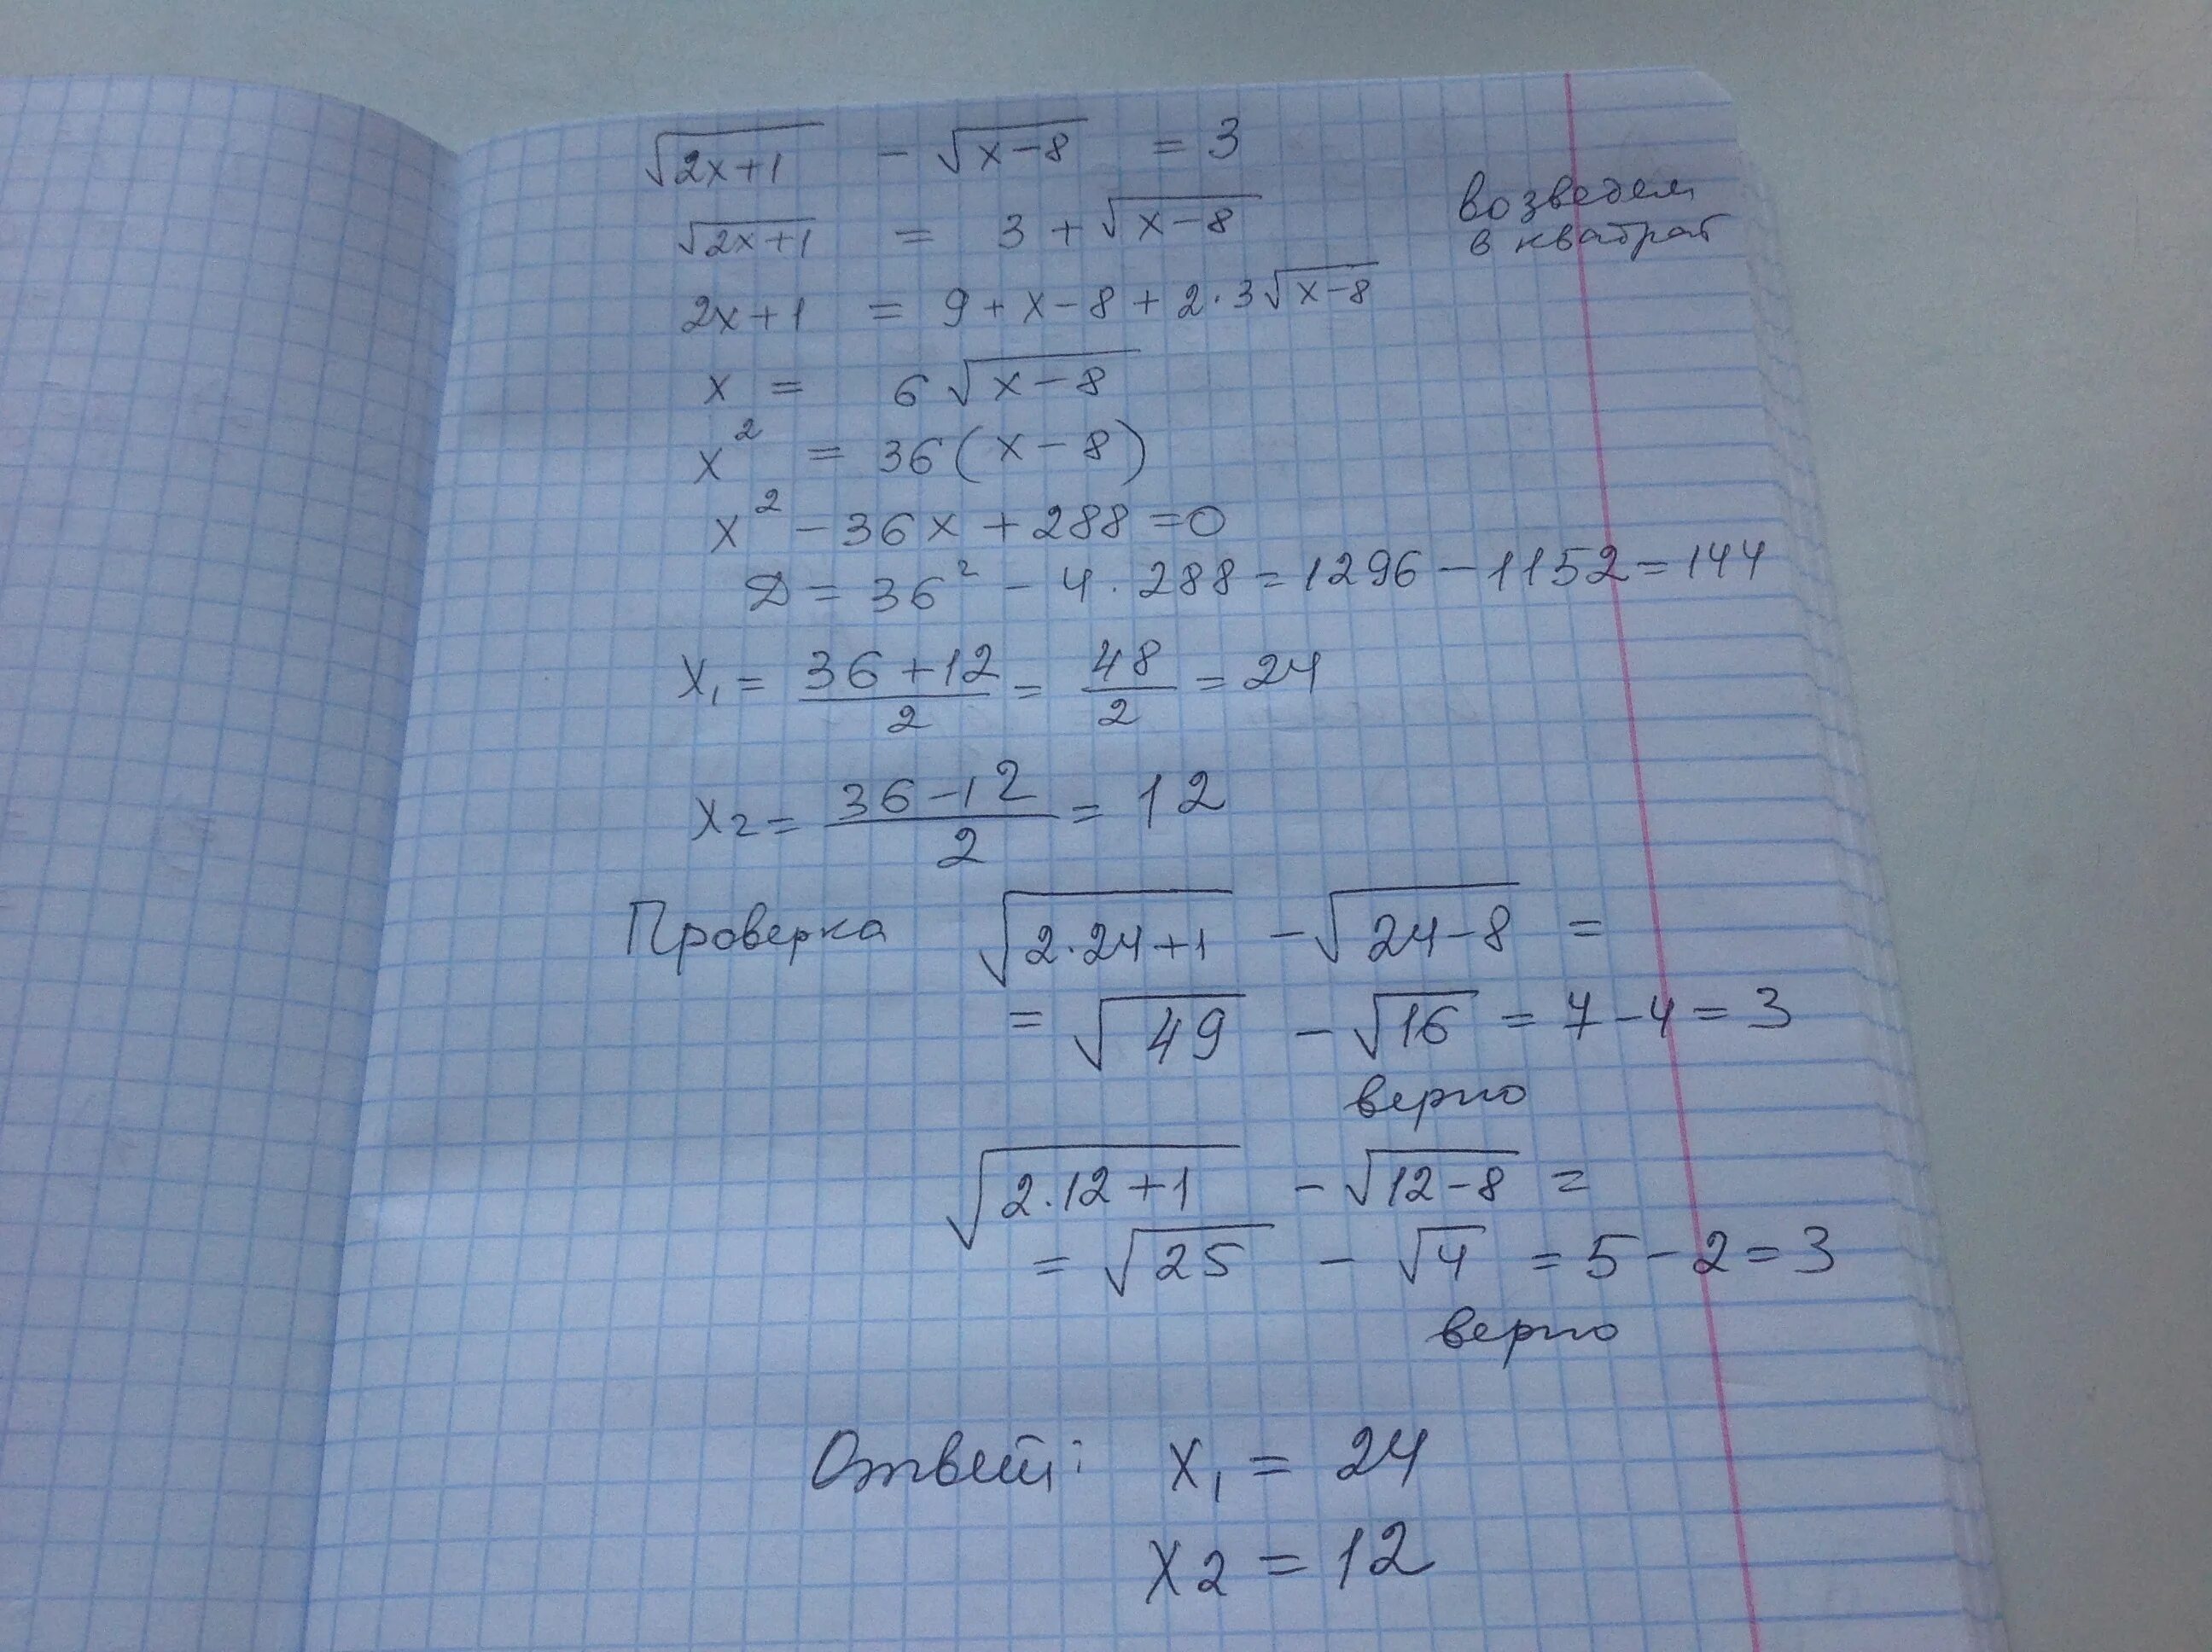 √2x+1 - √x-8 = 3
√2x+1 = 3 + √x-8 возведем в квадрат
2x+1 = 9 + x-8 + 2·3√x-8
x = 6√x-8
x² = 36(x-8)
x² - 36x + 288 = 0
D = 36² - 4·288 = 1296 - 1152 = 144
x₁ = (36+12)/2 = 48/2 = 24
x₂ = (36-12)/2 = 12
Проверка √2·24+1 - √24-8 =
= √49 - √16 = 7-4 = 3
верно
√2·12+1 - √12-8 =
= √25 - √4 = 5-2 = 3
верно
Ответ: x₁ = 24
x₂ = 12